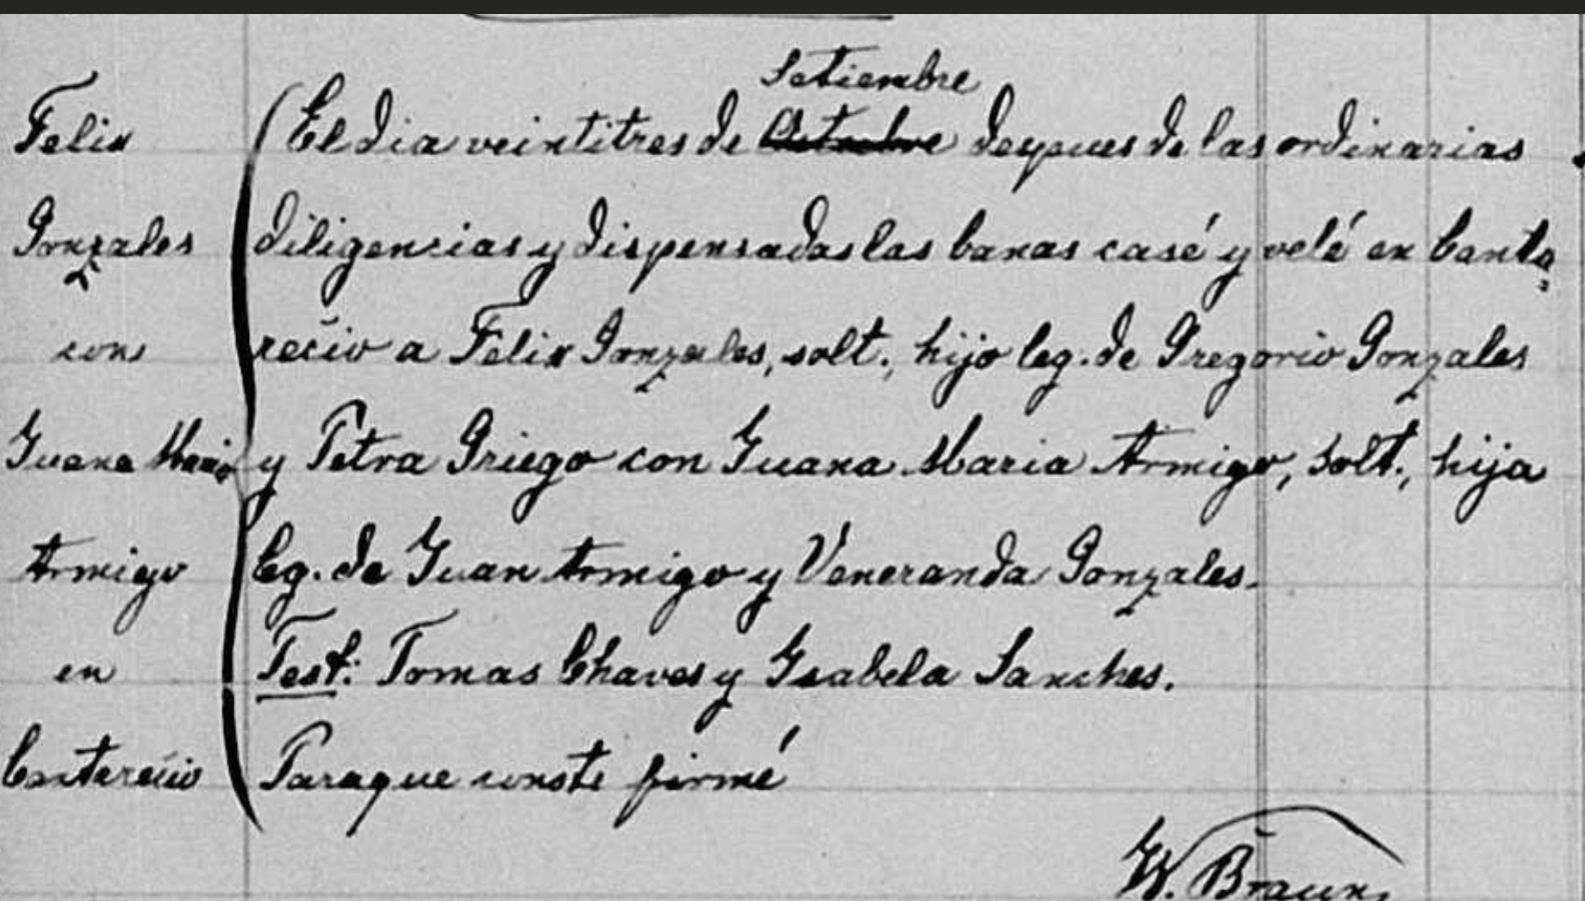 Setiembre
Felix
El dia veintitres de Octubre despues de las ordinarias
Gonzales
diligencias y dispensadas las banas casé y velé en Canta
con
recio a Felix Gonzales, solt., hijo leg. de Gregorio Gonzales
Juana Maria
y Petra Griego con Juana Maria Armigo, solt., hija
Armigo
leg. de Juan Armigo y Veneranda Gonzales.
en
Test: Tomas Chaves y Isabela Sanches.
Cantarecio
Paraque conste firmé
W. Braun,